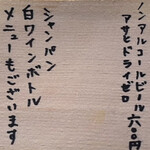 ノンアルコールビール 六〇〇円
アサヒドライゼロ
シャンパン
白ワインボトル
メニューもございます